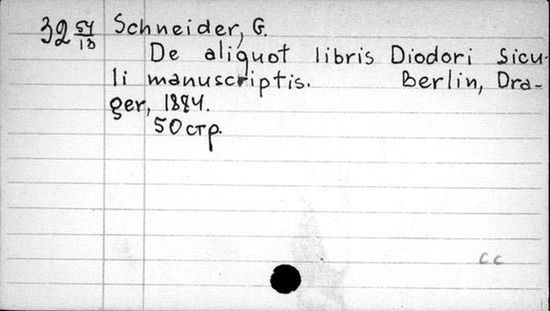 32 54/13 Schneider, G.
De aliquot libris Diodori Sicu-
li manuscriptis. Berlin, Dra-
ger, 1884.
50 стр.
CC